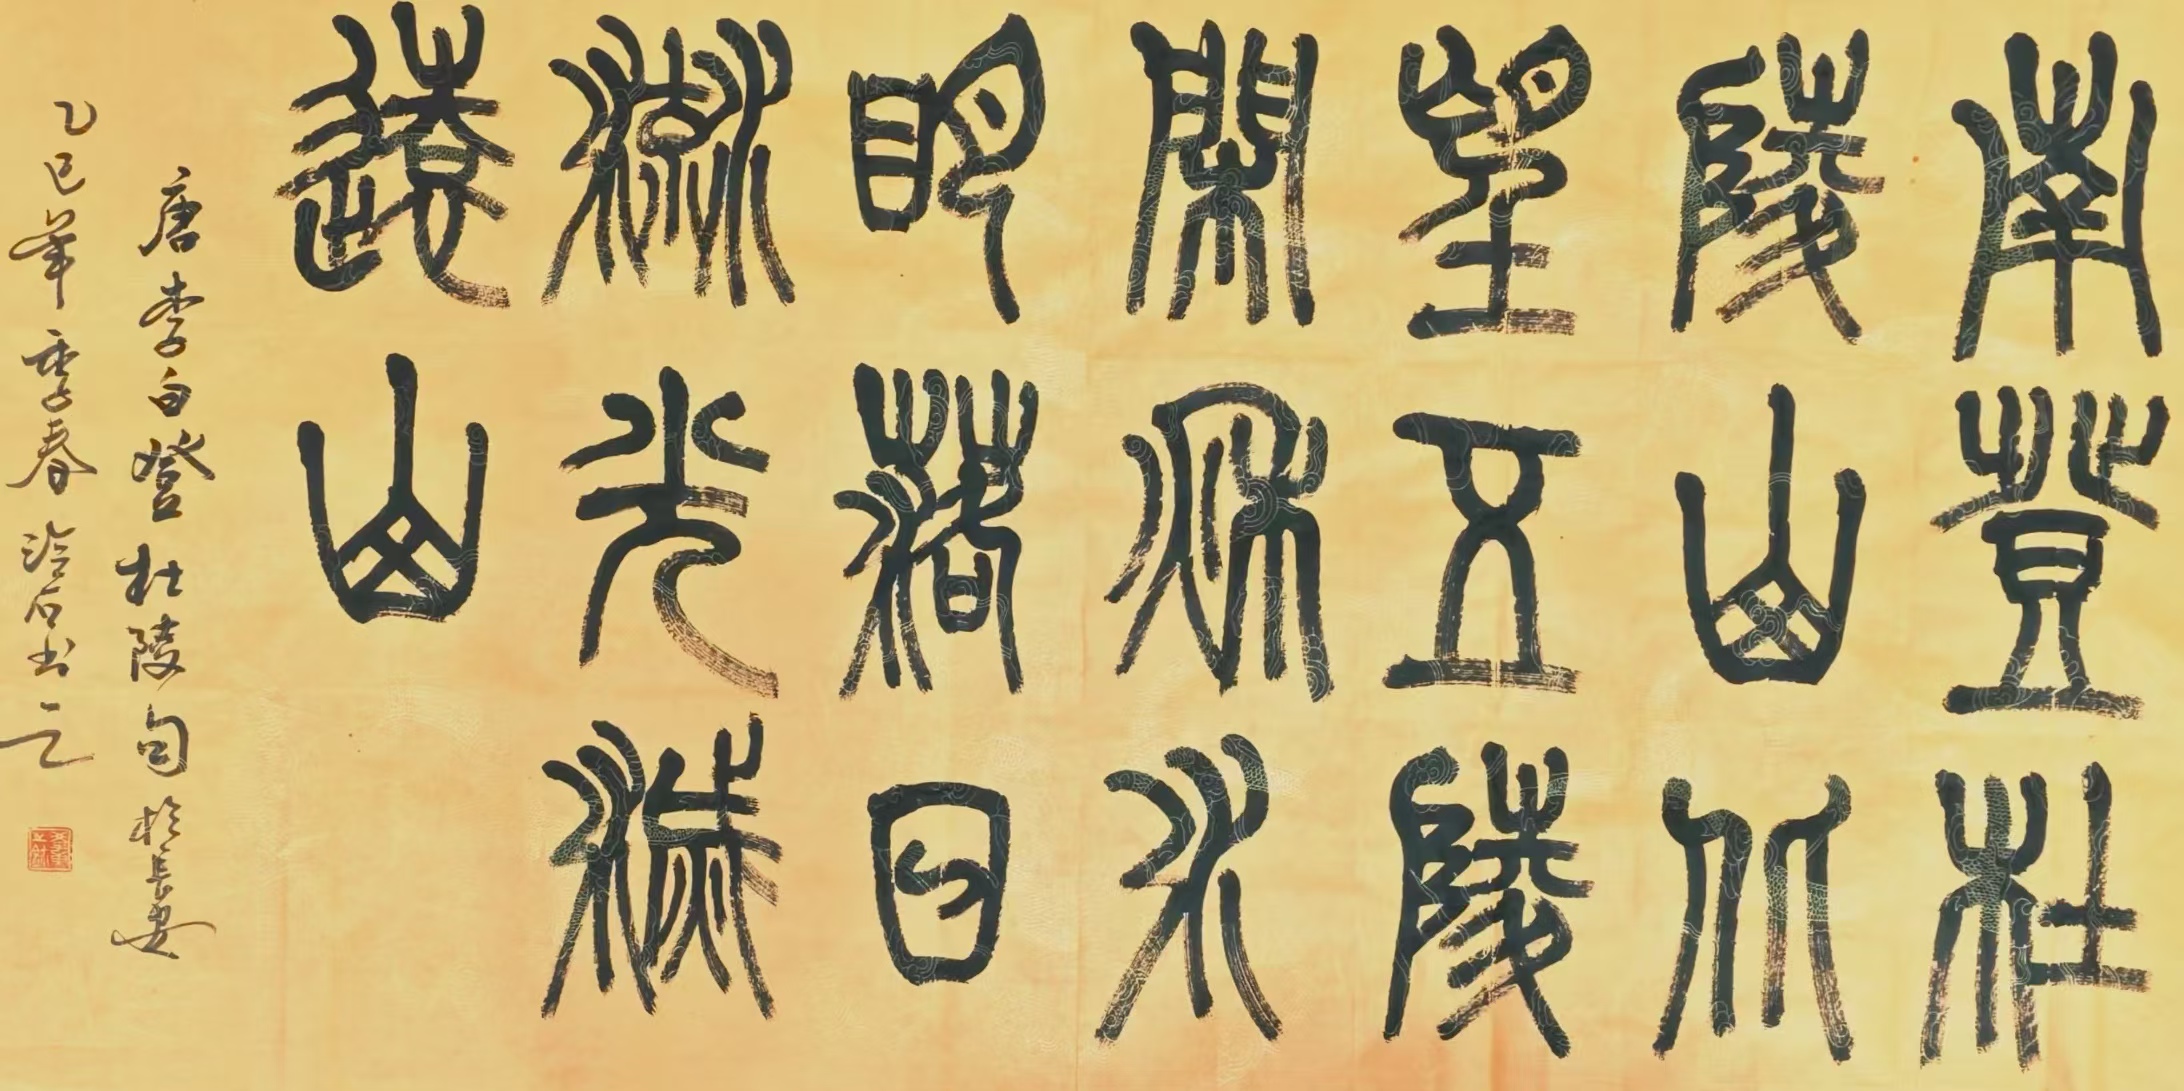 南登杜
陵山北
望五陵
間秋水
明落日
流光滅
遠山
唐李白登杜陵句於長安
乙巳年季春石书之